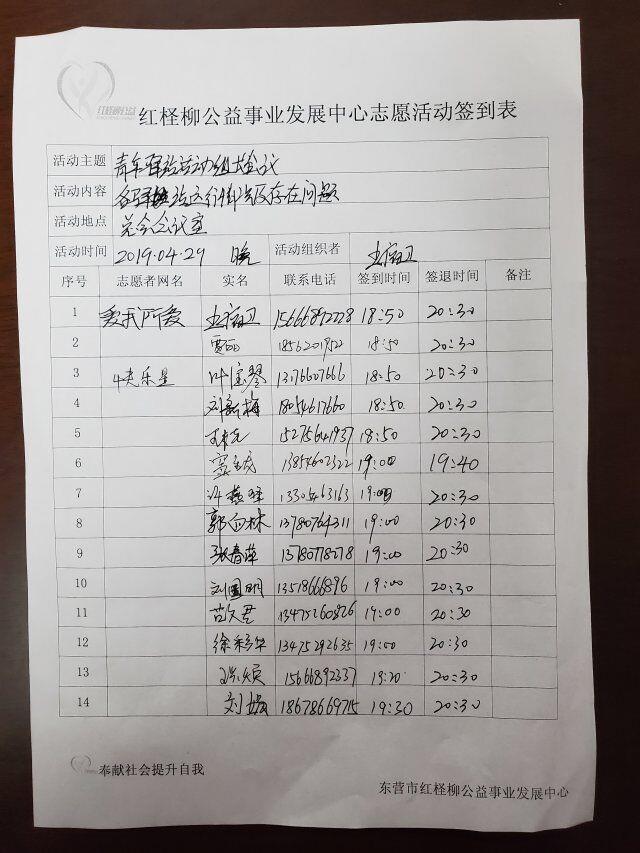 红柽柳公益
红柽柳公益事业发展中心志愿活动签到表
活动主题
活动内容 运行 及存在问题
活动地点 总会会议室
活动时间 2019.04.29 晚 活动组织者
序号 志愿者网名 实名 联系电话 签到时间 签退时间 备注
1 爱我所爱 15666892228 18:50 20:30
2 贾 1856201952 18:50 20:30
3 快乐星 叶宝琴 13176607666 18:50 20:30
4 刘新梅 18054617660 18:50 20:30
5 15275641937 18:50 20:30
6 13854602322 19:00 19:40
7 许 13305463163 19:00 20:30
8 郭 林 13780764311 19:00 20:30
9 张春萍 13780778078 19:00 20:30
10 刘国明 13518666896 19:00 20:30
11 苗 君 13475260826 19:00 20:30
12 徐 华 13475292635 19:00 20:30
13 15666892337 19:20 20:30
14 刘 18678669715 19:30 20:30
奉献社会提升自我
东营市红柽柳公益事业发展中心